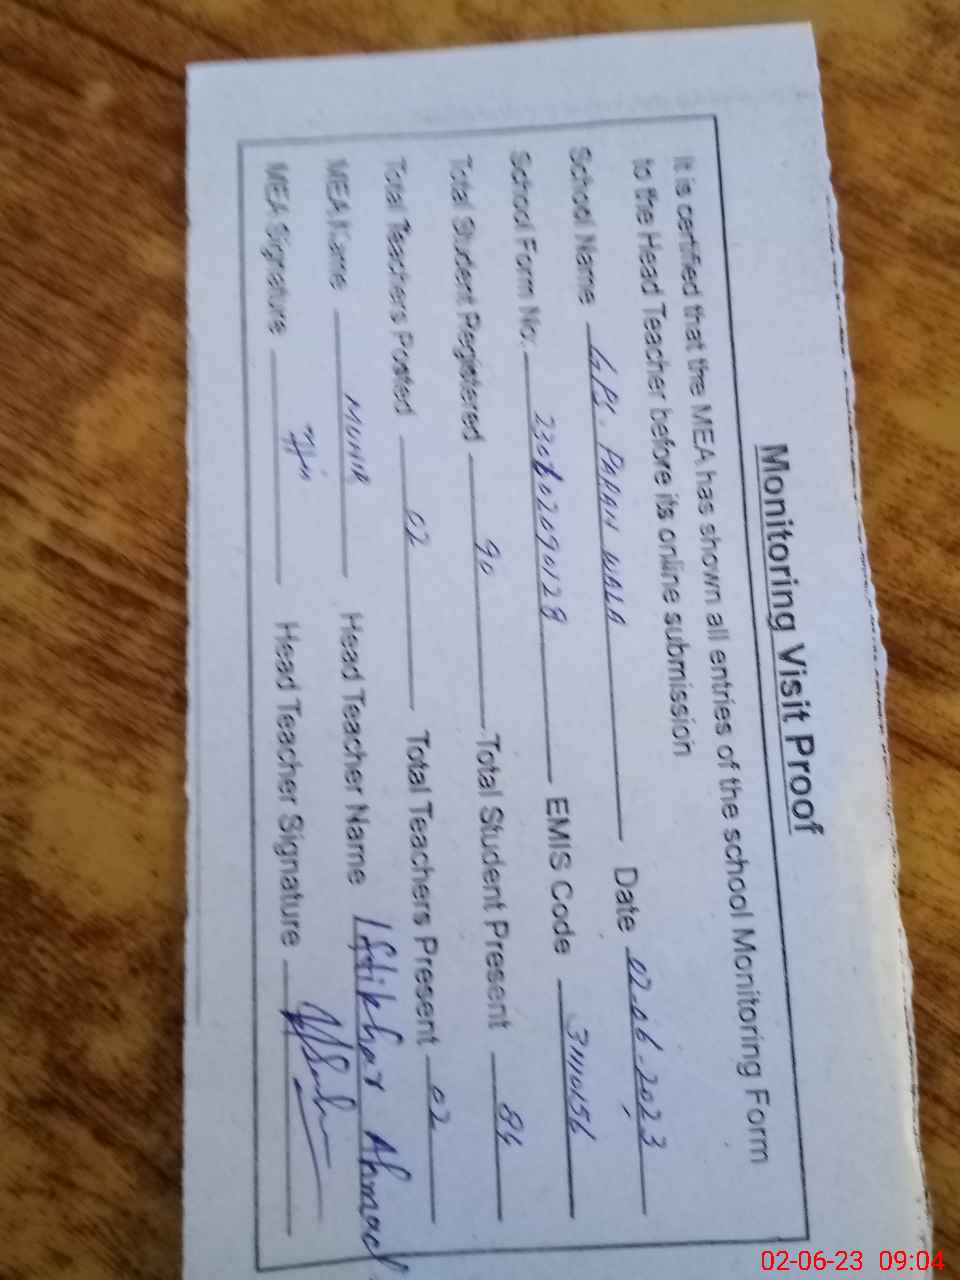 Monitoring Visit Proof
It is certified that the MEA has shown all entries of the school Monitoring Form
to the Head Teacher before its online submission
School Name GPS. PAKAN WALA Date 02.06.2023
School Form No: EMIS Code 31110156
Total Student Registered 90 Total Student Present 84
Total Teachers Posted 02 Total Teachers Present 02
MEA Name MUNIR Head Teacher Name Iftikhar Ahmad
MEA Signature Head Teacher Signature
02-06-23 09:04